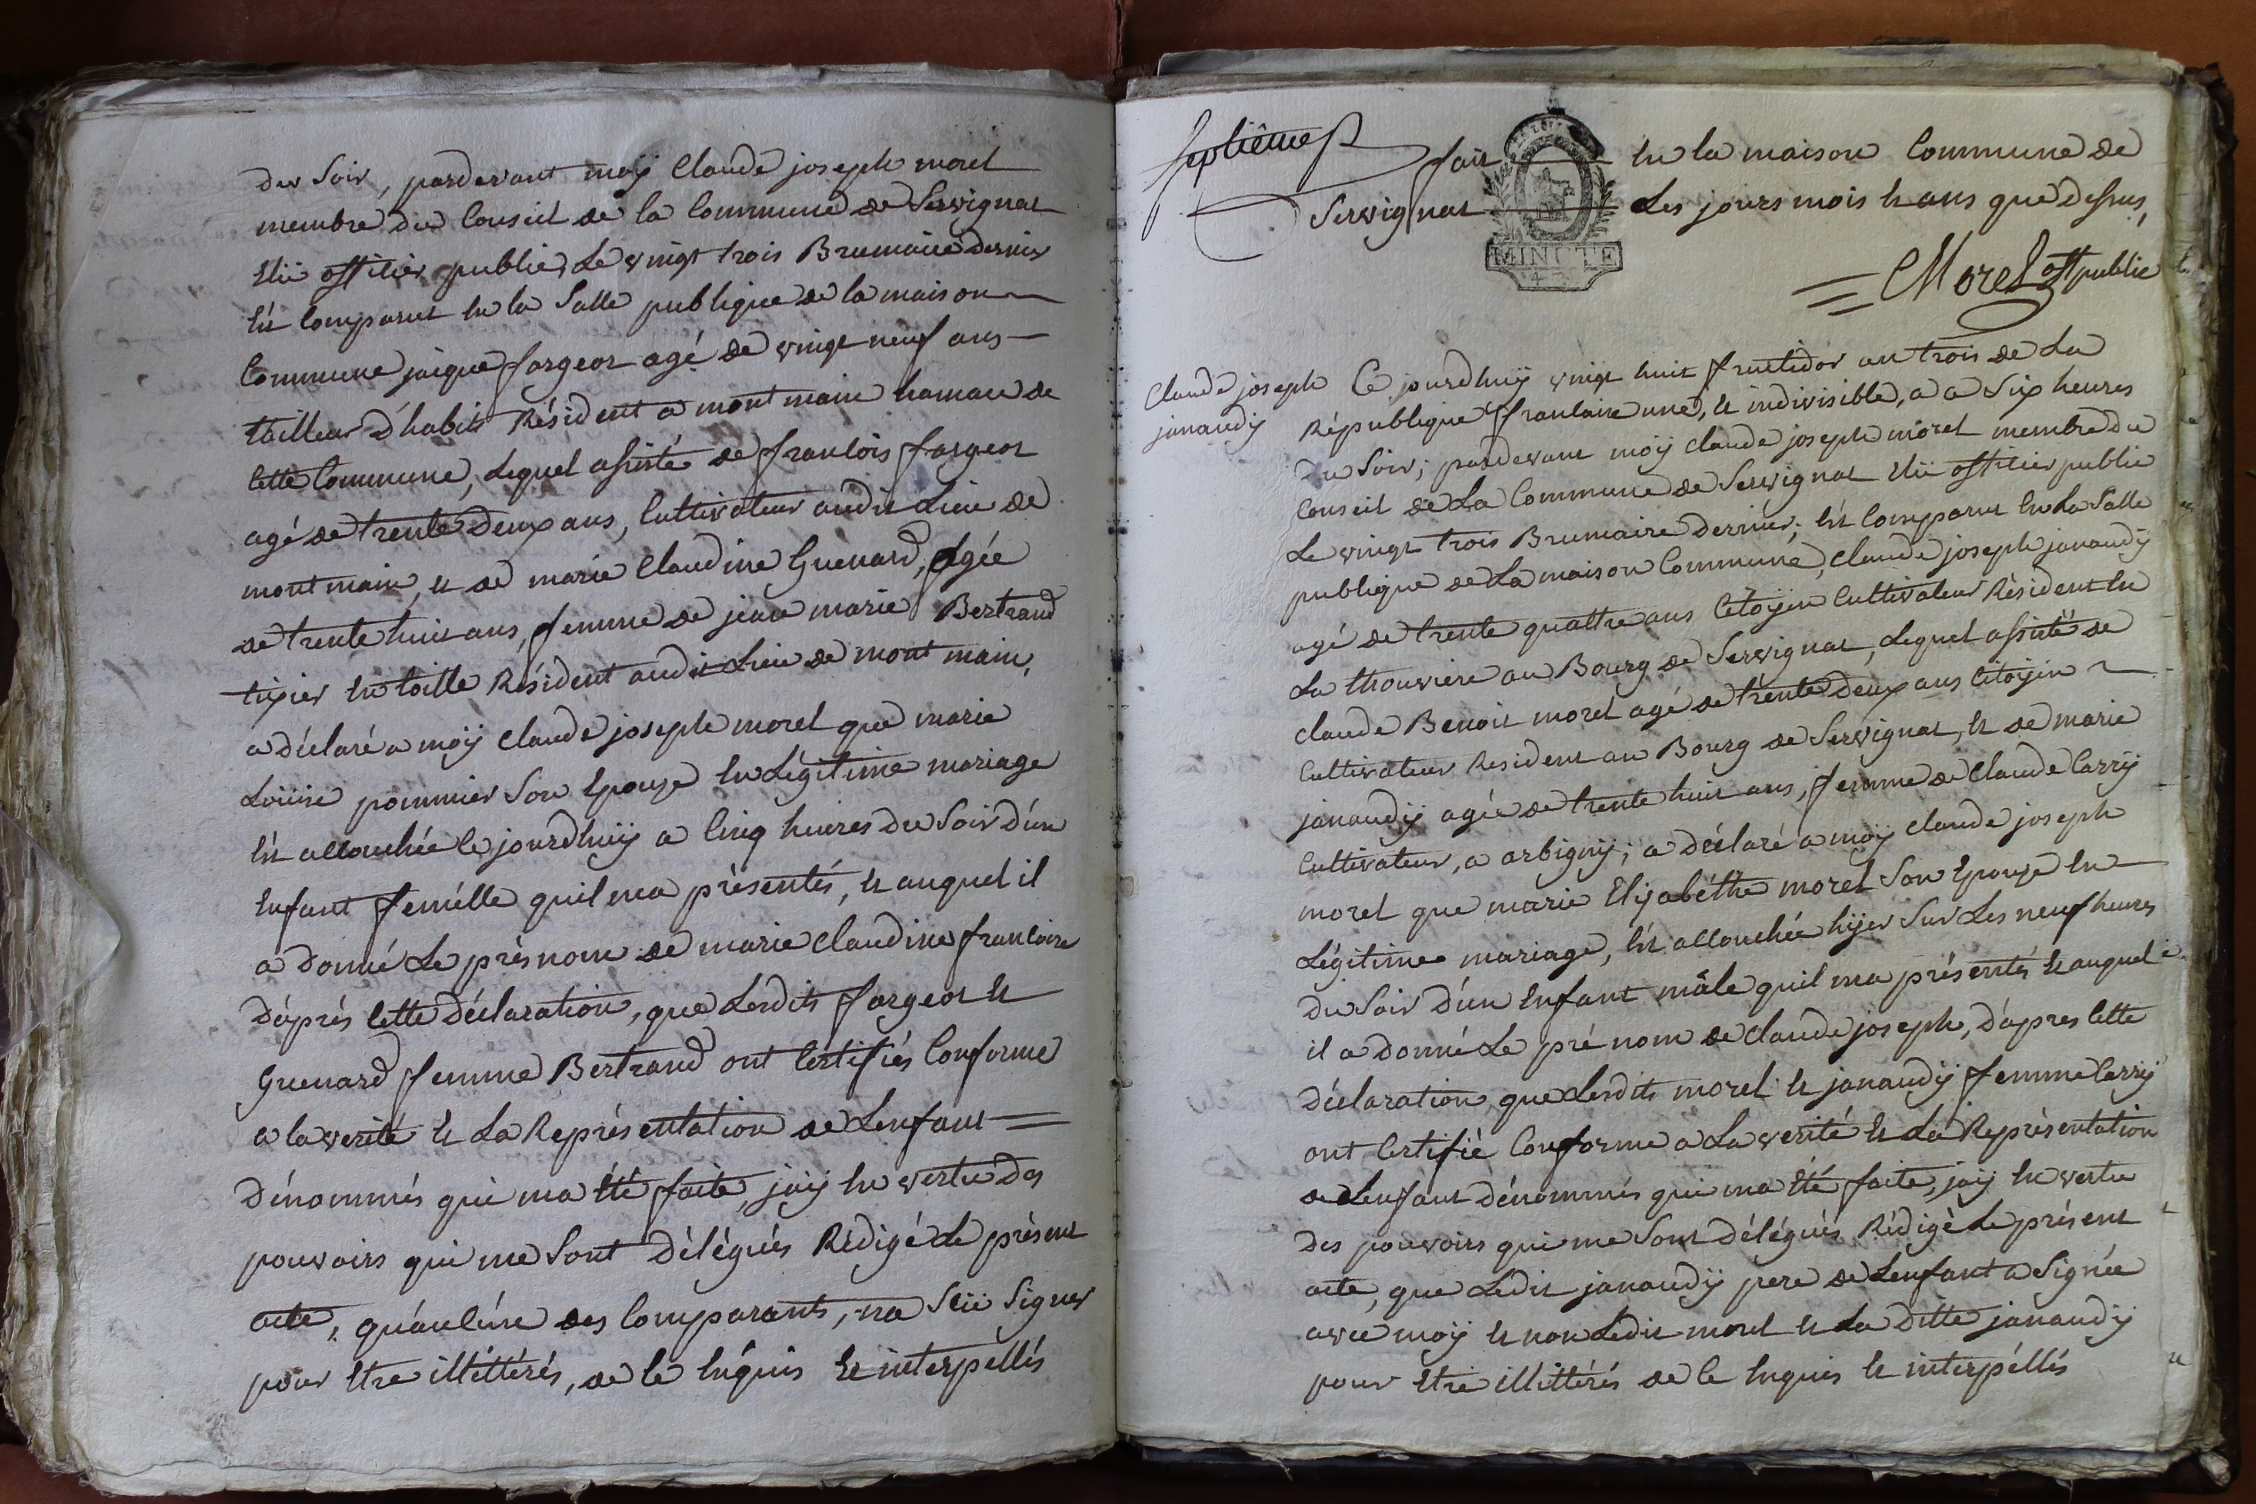 du Soir, pardevant moÿ Claude joseph morel
membre du Conseil de la Commune de Servignat
Elü officier public, Le vingt trois Brumaire dernier
Est Comparut En la Salle publique de la maison
Commune jaique fargeot agé de vingt neuf ans
tailleur d'habits Résident a montmain hamau de
Cette Commune, Lequel assisté de francois fargeot
agé de trente deux ans, Cultivateur audit Lieu de
montmain, Et de marie Claudine Guenard, Agée
de trente huit ans, femme de jean marie Bertrand
tixier En toille Résident audit Lieu de montmain,
a déclaré a moÿ Claude joseph morel que marie
Loüise pommier Son Epouze En Légitime mariage
Est accouchée Ce jourdhuÿ a Cinq heures du Soir d'un
Enfant femélle quil ma présentés, Et auquel il
a donné Le présnom de marie Claudine francoise
D'aprés Cette déclaration, que Lesdits fargeot Et
Guenard femme Bertrand ont Certifiés Conforme
a la verité Et La Représentation de Lenfant
dénommés qui ma Eté faite, jaÿ En vertu des
pouvoirs qui me Sont délégués Rédigé Le présent
acte, qu'aucúne des Comparants, na Sçü Signer
pour Etre illéttérés, de Ce Enquis Et interpéllés
Septiême
fait En la maison Commune de
Servignat Les jours mois Et ans que dessus,
MINUTE
Morel off public
Claude joseph
janaudÿ
Ce jourdhuÿ vingt huit fructidor an trois de La
République francaise une, Et indivisible, a a Six heures
Du Soir; pardevant moÿ claude joseph morel membre du
Conseil de La Commune de Servignat Elü officier public
Le vingt trois Brumaire dernier; Est Comparut En La Salle
publique de La maison Commune, Claude joseph janaudÿ
agé de trente quattre ans Citoÿen Cultivateur Résident En
La thouviere au Bourg de Servignat, Lequel assisté de
claude Benoit morel agé de trente deux ans Citoÿen
Cultivateur Resident au Bourg de Servignat, Et de marie
janaudÿ agée de trente huit ans, femme de Claude Carrÿ
Cultivateur, a arbignÿ; a déclaré a moÿ claude joseph
morel que marie Elizabéthe morel Son Epouze En
Légitime mariage, Est accouchée hÿer Sur Les neuf heures
du Soir d'un Enfant mâle quil ma présentés Et auquel
il a donné Le pré nom de Claude joseph, d'apres Cette
déclaration que Lesdits morel Et janaudÿ femme Carrÿ
ont Certifié Conforme a La verité Et La Représentation
de Lenfant dénommés qui ma Eté faite, jaÿ En vertu
Des pouvoirs qui me Sont délégués Rédigé Le présent
acte, que Ledit janaudÿ pere de Lenfant a Signée
avec moÿ Et non Ledit morel Et La ditte janaudÿ
pour Etre illittérés de Ce Enquis Et interpéllés